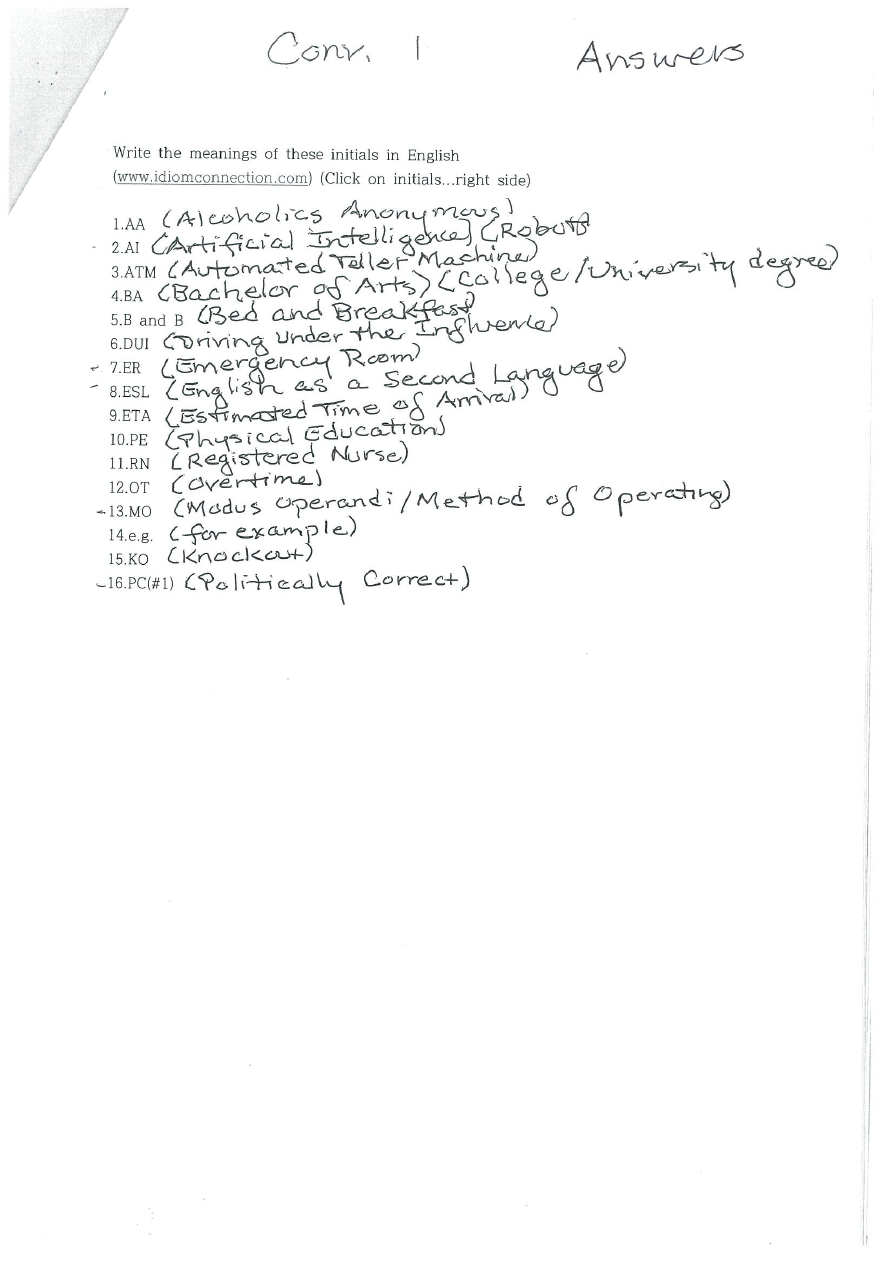 Conv. 1 Answers
Write the meanings of these initials in English
(www.idiomconnection.com) (Click on initials...right side)
1.AA (Alcoholics Anonymous)
2.AI (Artificial Intelligence) (Robots
3.ATM (Automated Teller Machine)
4.BA (Bachelor of Arts) (College/University degree)
5.B and B (Bed and Breakfast
6.DUI (Driving Under the Influence)
7.ER (Emergency Room)
8.ESL (English as a Second Language)
9.ETA (Estimated Time of Arrival)
10.PE (Physical Education)
11.RN (Registered Nurse)
12.OT (Overtime)
13.MO (Modus Operandi/Method of Operating)
14.e.g. (for example)
15.KO (Knockout)
16.PC(#1) (Politically Correct)